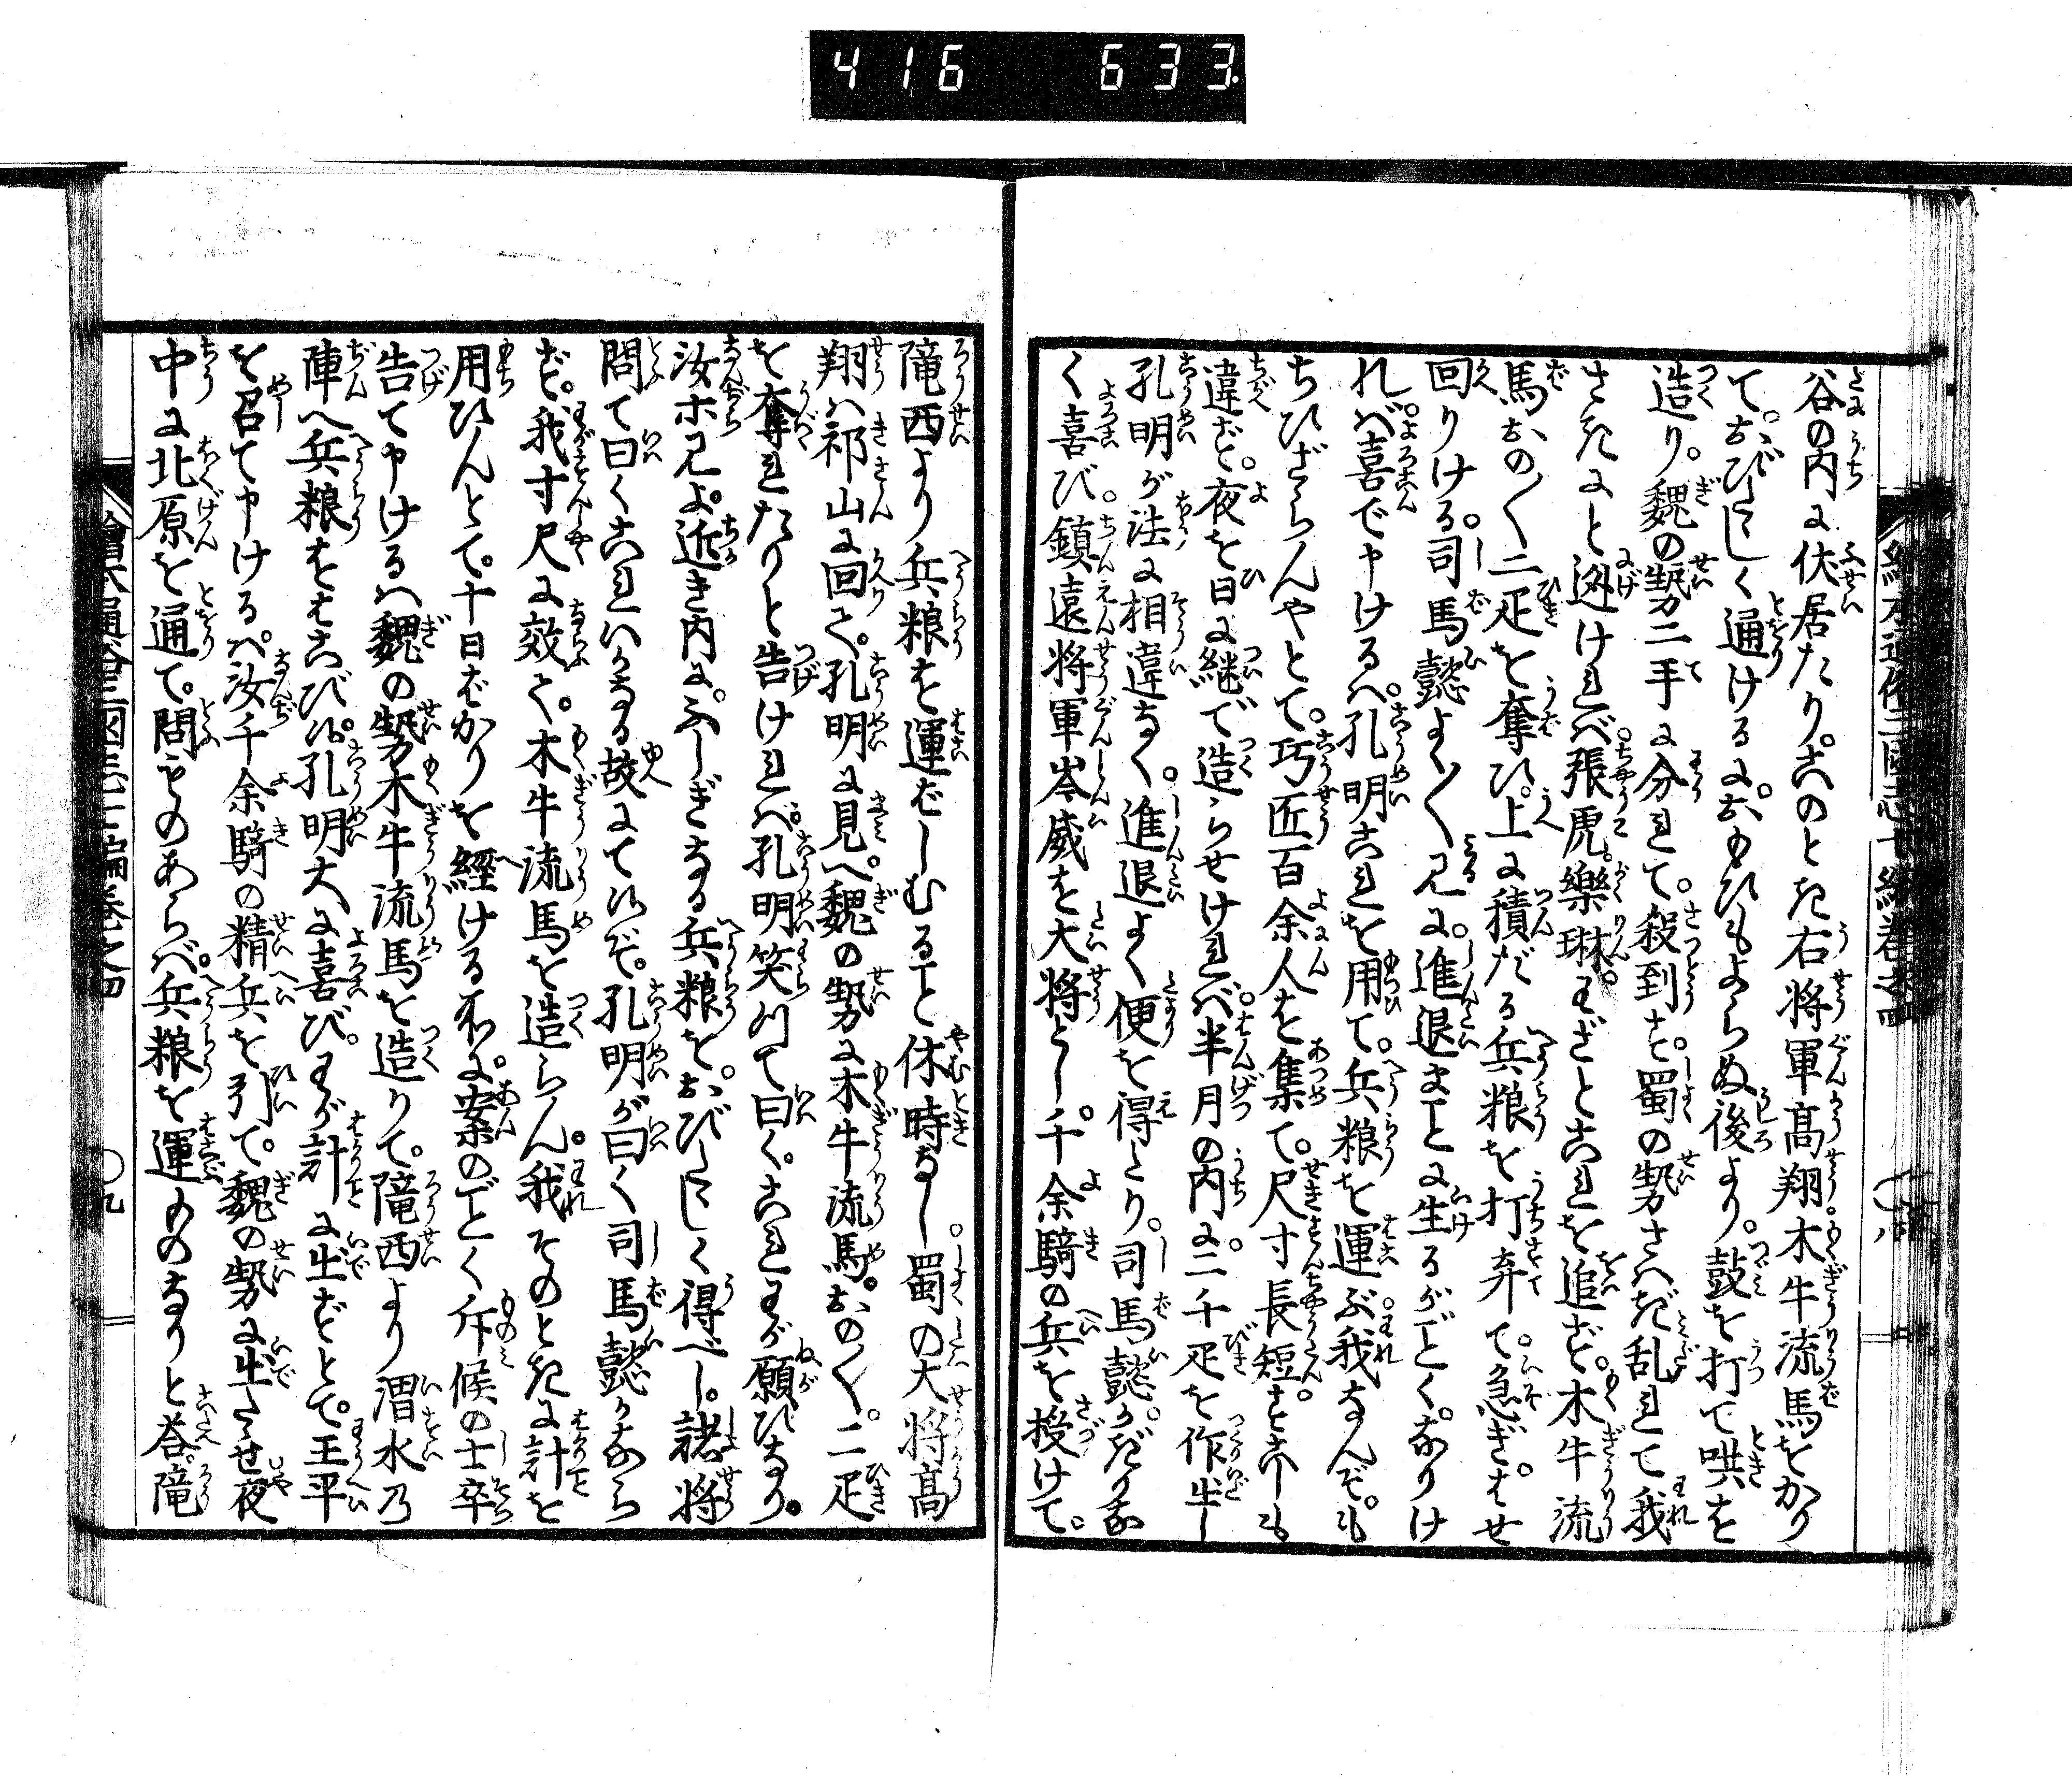 416 633
谷の内に伏居たり。このとき右将軍高翔。木牛流馬をかり
て。おびたゞしく通りけるに。おもひもよらぬ後より。鼓を打て哄を
造り。魏の勢二手に分れて。殺到す。蜀の勢さへぎ乱れて我
さきにと迯ければ。張虎。樂琳。わざとこれを追ず。木牛流
馬おの〱二疋を奪ひ。上に積だる兵粮を打弃て。急ぎはせ
回りける。司馬懿よく〱見るに。進退まことに生るがごとくありけ
れば。喜で申けるは。孔明これを用て。兵粮を運ぶ。我なんぞ。も
ちひざらんやとて。巧匠百余人を集て。尺寸長短。すこしも
違ず。夜を日に継で造らせければ。半月の内に。二千疋を作出し
孔明が法に相違なく。進退よく便を得たり。司馬懿かぎりな
く喜び。鎮遠将軍岑威を大将とし。千余騎の兵を授けて。
隴西より兵粮を運ばしむること休時なし。蜀の大将高
翔は祁山に回て。孔明に見へ。魏の勢に木牛流馬。おの〱。二疋
を奪れたりと告ければ。孔明笑て曰く。これわが願ひなり。
汝ホ見よ。近き内に。ふしぎなる兵粮を。おびたゞしく得べし。諸将
問て曰くこれいかなる故にて候ぞ。孔明が曰く司馬懿かなら
ず。我寸尺に效て。木牛流馬を造らん。我そのときに計を
用ひんとて。十日ばかりを經けるに。案のごとく斥候の士卒
告て申けるは魏の勢木牛流馬を造りて。隴西より渭水乃
陣へ兵粮をはこび候。孔明大に喜び。わが計に出ずとて。王平
を召て申けるは。汝千余騎の精兵を引て。魏の勢に出たゝせ夜
中に北原を通て。問ものあらば。兵粮を運ぶものなりと答。隴